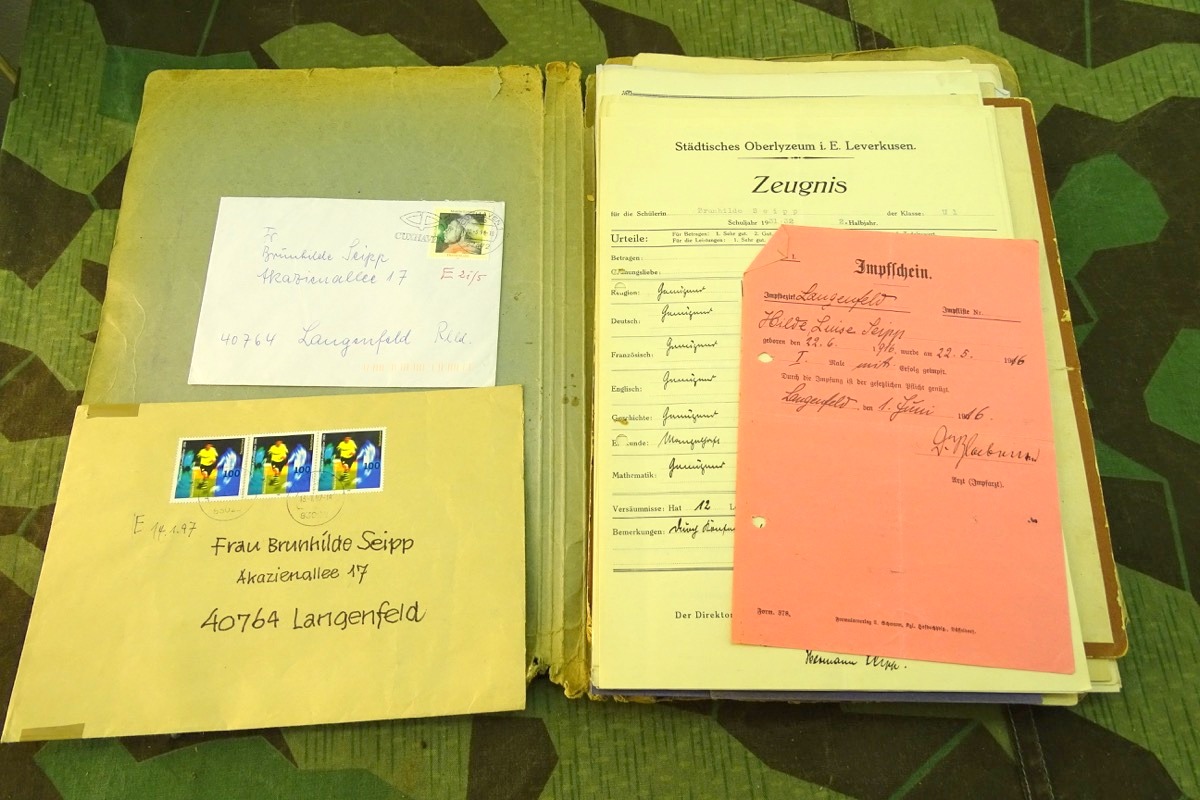 Fr
Brunhilde Seipp
Akazienallee 17
E 2i/5
40764 Langenfeld Rhld.
100 100 100
E 14.1.97
Frau Brunhilde Seipp
Akazienallee 17
40764 Langenfeld
Städtisches Oberlyzeum i. E. Leverkusen.
Zeugnis
für die Schülerin Brunhilde Seipp der Klasse: U I
Schuljahr 19 2. Halbjahr.
Urteile: Für Betragen: 1. Sehr gut. 2. Gut.
Für die Leistungen: 1. Sehr gut.
Betragen:
Ordnungsliebe:
Religion: Genügend
Deutsch: Genügend
Französisch: Genügend
Englisch: Genügend
Geschichte: Genügend
Erdkunde: Mangelhaft
Mathematik: Genügend
Versäumnisse: Hat 12
Bemerkungen: Durch
Der Direktor
Hermann Seipp.
Impfschein.
Impfbezirk Langenfeld
Impfliste Nr.
Hilde Luise Seipp
geboren den 22. 6. 1916, wurde am 22. 5. 1916
I. Male mit Erfolg geimpft.
Durch die Impfung ist der gesetzlichen Pflicht genügt.
Langenfeld, den 1. Juni 1916.
Arzt (Impfarzt).
Form. 378.